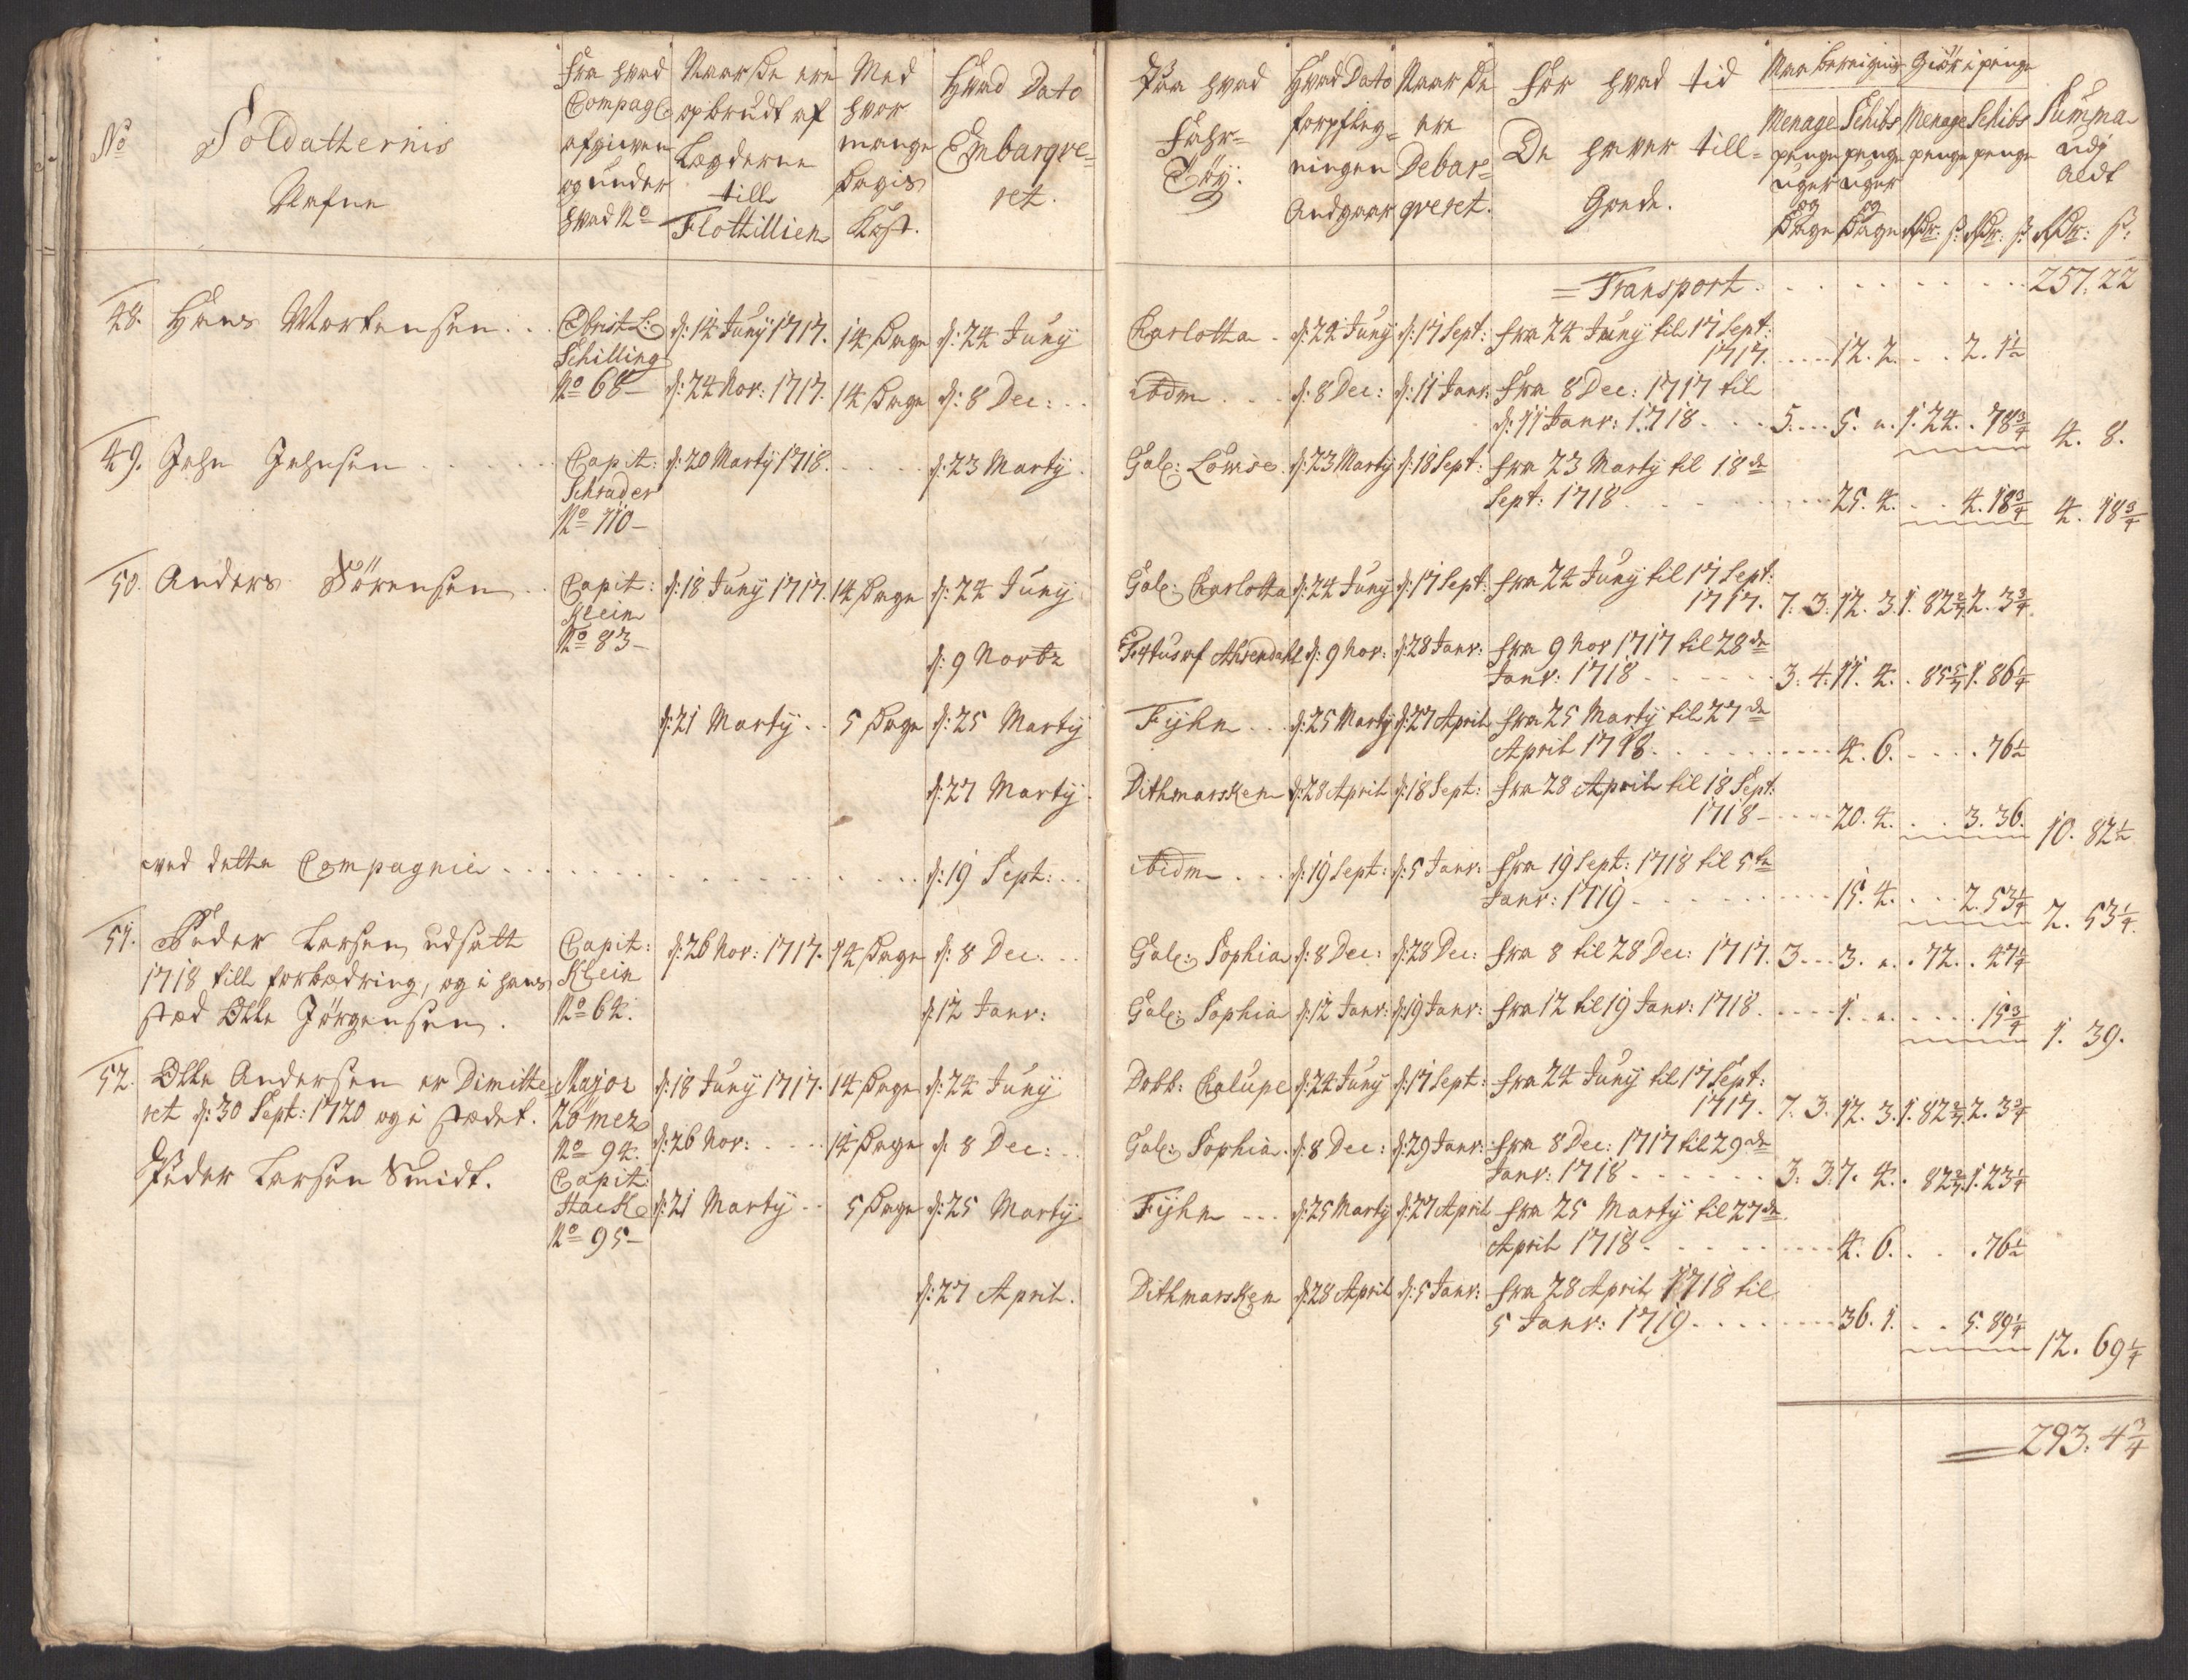 No
Soldatternis
Nafne
Fra hvad
Compag:
afgiven
og under
hvad No
Naar De ere
opbrudt af
Lægderne
till
Flottillien
Med
hvor
mange
Dagis
Kost.
Hvad Dato
Embarqve=
ret.
Paa hvad
Fahr=
Töy:
Hvad Dato
forpfleg=
ningen
Andgaar
Naar De
ere
Debar=
qveret.
För hvad tid
De haver till=
Gode.
Giör i penge
Menage
penge
uger
og
Dage
Schibs
penge
uger
og
Dage
Menage
penge
Rdr: ß:
Schibs
penge
Rdr: ß:
Summa
udj
aldt
Rdr: ß:
= Transport . . . . . . . . . 257. 22
48. Hans Mortensen . . . Obrist L: d: 14 Juny 1717. 14 Dage d: 24 Juny Carlotta . d: 24 Juny d: 17 Sept: fra 24 Juny til 17 Sept:
Schilling 1717. . . . . 12. 2. . . 2. 1½
No 68 – d: 24 Nov: 1717. 14 Dage d: 8 Dec: . . ibidm . . . d: 8 Dec: d: 11 Janr: fra 8 Dec: 1717 til
d: 11 Janr: 1718 . . . 5. . . . 5. „. 1. 24. . 78¾ 4. 8.
49. Jahn Jahnsen . . . . . . Capit: d: 20 Marty 1718. . . . . d: 23 Marty . Gal: Lowise . d: 23 Marty d: 18 Sept: fra 23 Marty til 18de
Schrader Sept: 1718 . . . . . . . . 25. 4. . . 4. 18¾ 4. 18¾
No 110 –
50. Anders Sörensen . . Capit: d: 18 Juny 1717. 14 Dage d: 24 Juny Gal: Carlotta d: 24 Juny d: 17 Sept: fra 24 Juny til 17 Sept:
Klein 1717. 7. 3. 12. 3. 1. 82 2/7 2. 3¾
No 83 – d: 9 Novbr d: 9 Nov: d: 28 Janr: fra 9 Nov 1717 til 28de
Janr: 1718 . . . . . . 3. 4. 11. 4. . 85 5/7 1. 86¼
d: 21 Marty . . 5 Dage d: 25 Marty Fyhn . . . d: 25 Marty d: 27 April fra 25 Marty til 27de
April 1718 . . . . . . . . . 4. 6. . . . . 76½
d: 27 Marty . Dithmarsken d: 28 April d: 18 Sept: fra 28 April til 18 Sept:
1718 – . . . . 20. 4. . . 3. 36. 10. 82½
ved dette Compagnie . . . . . . . . . . . . . . . d: 19 Sept: . . ibidm . . . d: 19 Sept: d: 5 Janr: fra 19 Sept: 1718 til 5te
Janr: 1719 . . . . . . . . . 15. 4. . . . 2. 53¼ 2. 53¼.
51. Peder Larsen udsatt Capit: d: 26 Nov: 1717. 14 Dage d: 8 Dec: . . Gal: Sophia d: 8 Dec: d: 28 Dec: fra 8 til 28 Dec: 1717. 3 . . . 3. „. . 72. . 47¼
1718 till forbædring, og i hans Klein
stæd Olle Jörgensen . No 64. d: 12 Janr: Gal: Sophia d: 12 Janr: d: 19 Janr: fra 12 til 19 Janr: 1718. . . . . 1. „. . . . . 15¾ 1. 39.
52. Olle Andersen er Dimitte Major d: 18 Juny 1717. 14 Dage d: 24 Juny Dobb: Calupe d: 24 Juny d: 17 Sept: fra 24 Juny til 17 Sept:
ret d: 30 Sept: 1720 og i stædet. Zömer 1717. 7. 3. 12. 3. 1. 82 2/7 2. 3¾
No 94. d: 26 Nov: . . . . 14 Dage d: 8 Dec: . . Gal: Sophia . d: 8 Dec: d: 29 Janr: fra 8 Dec: 1717 til 29de
Peder Larsen Smidt. Capit: Janr: 1718 . . . . . . 3. 3. 7. 4. . 82 2/7 1. 23¼
Hacke d: 21 Marty . . 5 Dage d: 25 Marty Fyhn . . . d: 25 Marty d: 27 April fra 25 Marty til 27de
No 95 – April 1718 . . . . . . . . 4. 6. . . . 76½
d: 27 April. Dithmarsken d: 28 April d: 5 Janr: fra 28 April 1718 til
5 Janr: 1719 . . . . . . . 36. 1. . . 5. 89¼ 12. 69¼
293. 4¾